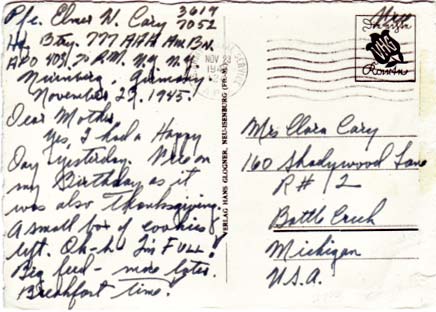 Pfc. Elmer W. Cary 3619
7052
Hq. Btry. 777 AAA Aw Bn.
APO 403, % P.M. N.Y. N.Y.
Nürnberg, Germany
November 23, 1945.
Dear Mother
Yes, I had a Happy
Day yesterday. on
my Birthday as it
was also thanksgiving.
A small box of cookies
left. Oh-h- I'm FULL!
Big feed - more later.
Breakfast time!
NOV 23
VERLAG HANS GLOGNER, NEU-ISENBURG
Mrs Clara Cary
160 Shadywood Lane
R # 12
Battle Creek
Michigan
U.S.A.